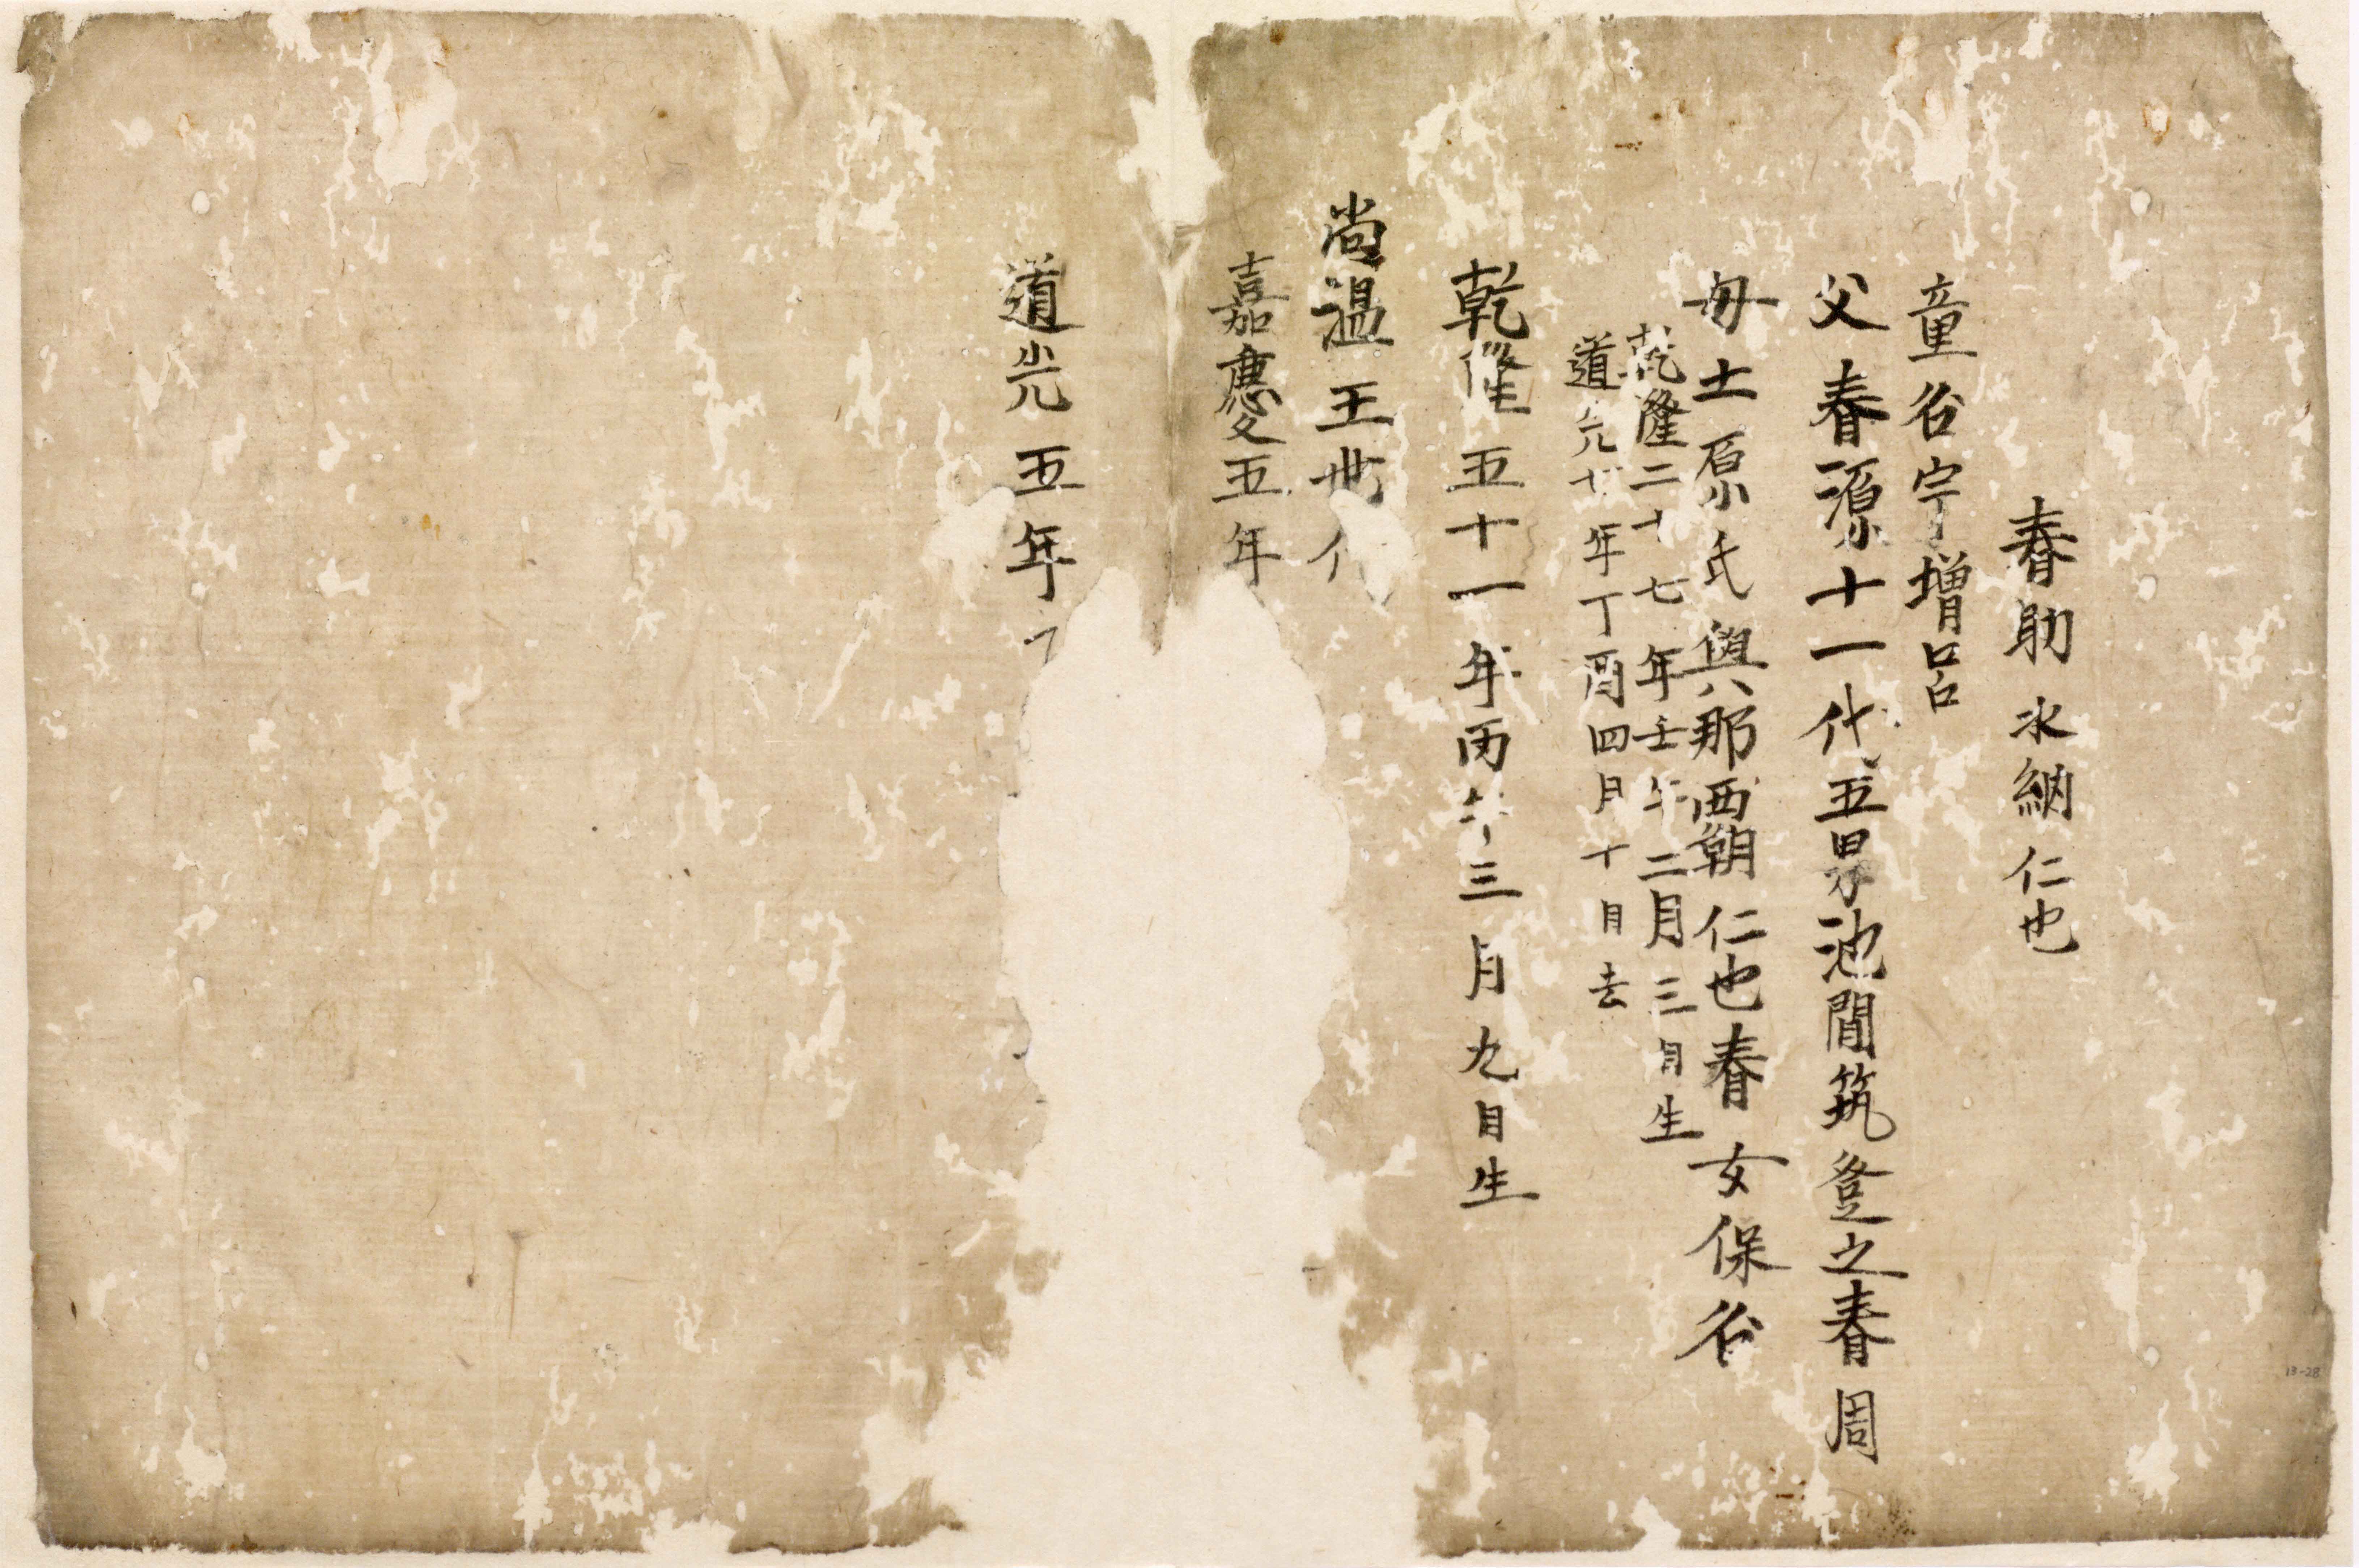 春助 水納 仁也
童名宇増呂
父春源十一代五男池間筑登之春周
母士原氏與那覇仁也春女保名
乾隆二十七年壬午二月三日生
道光十 年丁酉四月十日去
乾隆五十一年丙午三月九日生
尚温王世代
嘉慶五年
道光五年
13-28